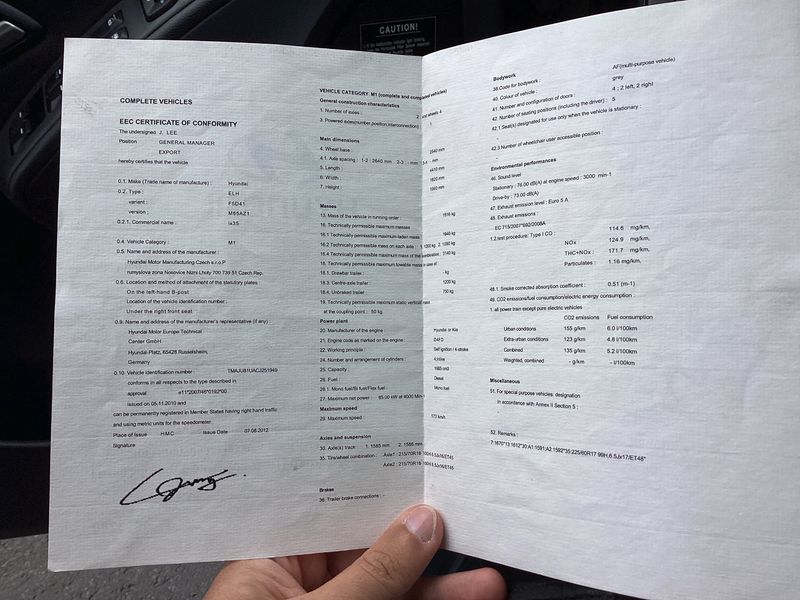 CAUTION!
COMPLETE VEHICLES
EEC CERTIFICATE OF CONFORMITY
The undersigned J. LEE
Position GENERAL MANAGER
EXPORT
hereby certifies that the vehicle
0.1. Make (Trade name of manufacturer) : Hyundai
0.2. Type : ELH
variant : F5D41
version : M65AZ1
0.2.1. Commercial name : ix35
0.4. Vehicle Category M1
0.5. Name and address of the manufacturer :
Hyundai Motor Manufacturing Czech s.r.o.P
rumyslova zona Nosovice Nizni Lhoty 700 739 51 Czech Rep.
0.6. Location and method of attachment of the statutory plates
On the left-hand B-post
Location of the vehicle identification number :
Under the right front seat
0.9. Name and address of the manufacturer's representative (if any) :
Hyundai Motor Europe Technical
Center GmbH
Hyundai-Platz, 65428 Russelsheim,
Germany
0.10. Vehicle identification number : TMAJU81UACJ251949
conforms in all respects to the type described in
approval e11*2007/46*0192*00
issued on 05.11.2010 and
can be permanently registered in Member States having right hand traffic
and using metric units for the speedometer.
Place of Issue HMC Issue Date 07.08.2012
Signature
VEHICLE CATEGORY M1 (complete and completed vehicles)
General construction characteristics
1. Number of axles : 2 wheels 4
3. Powered axles(number,position,interconnection) : 1
Main dimensions
4. Wheel base : 2640 mm
4.1. Axle spacing : 1-2 : 2640 mm 2-3 : - mm 3-4
5. Length : 4410 mm
6. Width : 1820 mm
7. Height :
Masses
13. Mass of the vehicle in running order :
16. Technically permissible maximum masses
16.1 Technically permissible maximum laden mass
16.2 Technically permissible mass on each axle :
16.4 Technically permissible maximum mass of the combination
18. Technically permissible maximum towable mass in case of
18.1. Drawbar trailer : - kg
18.3. Centre-axle trailer : 1200 kg
18.4. Unbraked trailer : 750 kg
19. Technically permissible maximum static vertical mass
at the coupling point : 50 kg
Power plant
20. Manufacturer of the engine : Hyundai or Kia
21. Engine code as marked on the engine : D4FD
22. Working principle : Self ignition / 4-stroke
24. Number and arrangement of cylinders : 4,inline
25. Capacity :
26. Fuel : Diesel
26.1. Mono fuel/Bi fuel/Flex fuel : Mono fuel
27. Maximum net power : 85.00 kW at 4000 Min-1
Maximum speed
29. Maximum speed : 173 km/h
Axles and suspension
30. Axle(s) track : 1. 1585 mm 2. 1586 mm
35. Tire/wheel combination : Axle1 : 215/70R16 100H 6.5Jx16/ET45
Axle2 : 215/70R16 100H 6.5Jx16/ET45
Brakes
36. Trailer brake connections : -
Bodywork
38.Code for bodywork : AF(multi-purpose vehicle)
40. Colour of vehicle : grey
41. Number and configuration of doors : 4 ; 2 left, 2 right
42. Number of seating positions (including the driver) : 5
42.1 Seat(s) designated for use only when the vehicle is stationary :
42.3 Number of wheelchair user accessible position :
Environmental performances
46. Sound level
Stationary : 76.00 dB(A) at engine speed : 3000 min-1
Drive-by : 73.00 dB(A)
47. Exhaust emission level : Euro 5 A
48. Exhaust emissions :
EC 715/2007*692/2008A
1.2.test procedure: Type I CO : 114.6 mg/km,
NOx 124.9 mg/km,
THC+NOx : 171.7 mg/km,
Particulates : 1.16 mg/km,
48.1. Smoke corrected absorption coefficient : 0.51 (m-1)
49. CO2 emissions/fuel consumption/electric energy consumption :
1. all power train except pure electric vehicles
CO2 emissions Fuel consumption
Urban conditions 155 g/km 6.0 l/100km
Extra-urban conditions 123 g/km 4.8 l/100km
Combined 135 g/km 5.2 l/100km
Weighted, combined - g/km - l/100km
Miscellaneous
51. For special purpose vehicles: designation
in accordance with Annex II Section 5 :
52. Remarks :
7:1670*13:1612*30:A1:1591;A2:1592*35:225/60R17 99H,6.5Jx17/ET48*